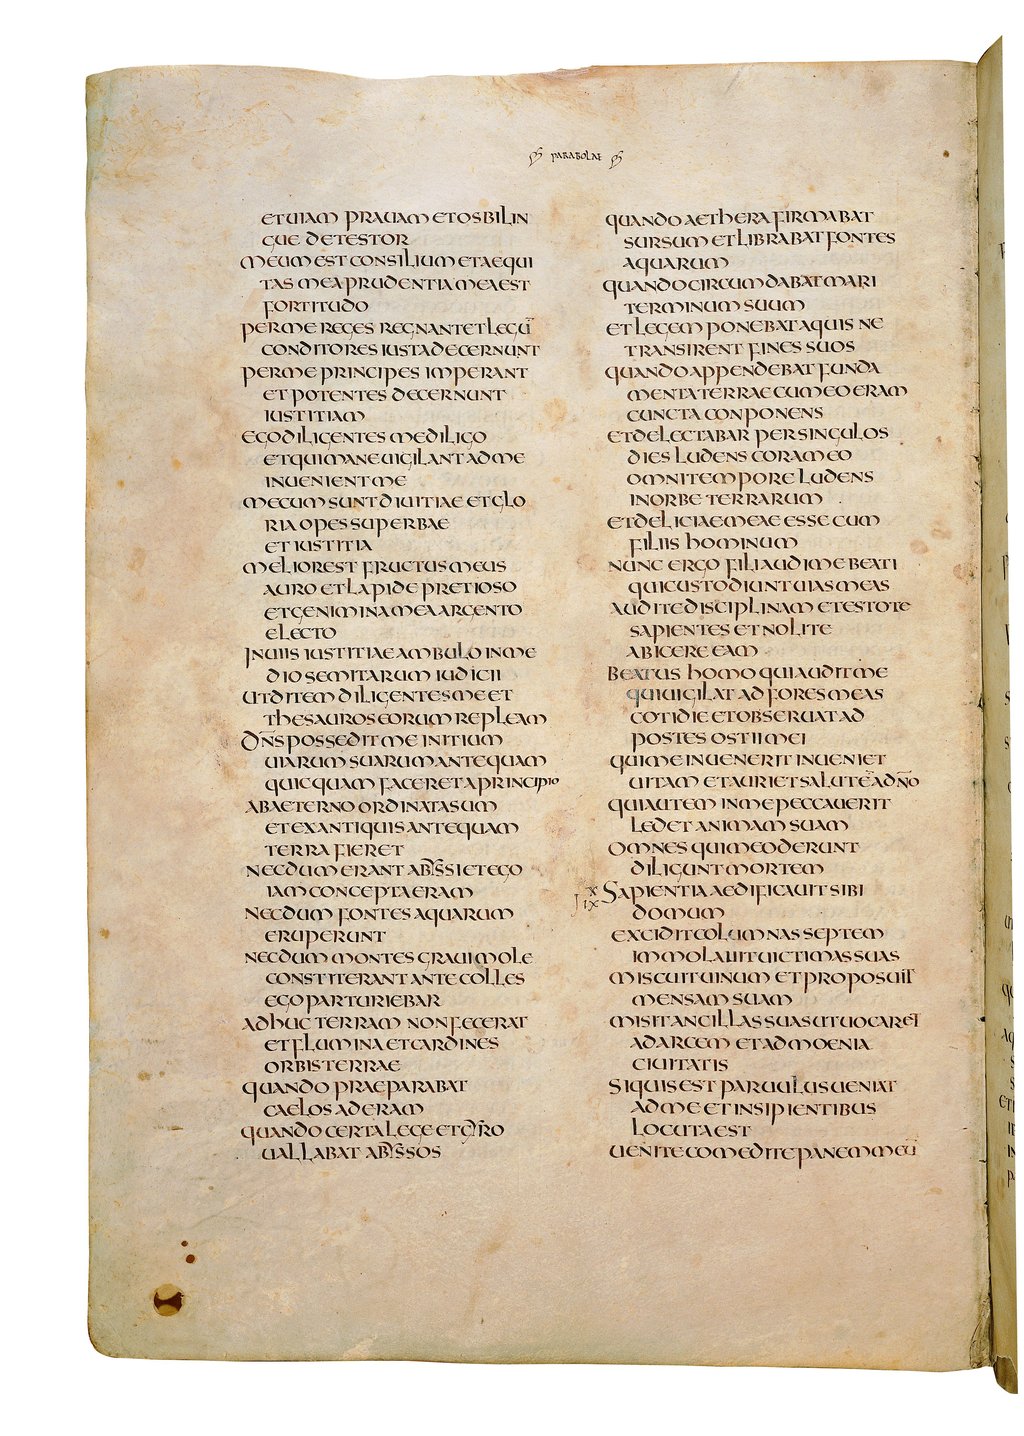 PARABOLAE
ET UIAM PRAUAM ET OS BILIN
GUE DETESTOR
MEUM EST CONSILIUM ET AEQUI
TAS MEA PRUDENTIA MEA EST
FORTITUDO
PER ME REGES REGNANT ET LEGŪ
CONDITORES IUSTA DECERNUNT
PER ME PRINCIPES IMPERANT
ET POTENTES DECERNUNT
IUSTITIAM
EGO DILIGENTES ME DILIGO
ET QUI MANE UIGILANT AD ME
INUENIENT ME
MECUM SUNT DIUITIAE ET GLO
RIA OPES SUPERBAE
ET IUSTITIA
MELIOR EST FRUCTUS MEUS
AURO ET LAPIDE PRETIOSO
ET GENIMINA MEA ARGENTO
ELECTO
IN UIIS IUSTITIAE AMBULO IN ME
DIO SEMITARUM IUDICII
UT DITEM DILIGENTES ME ET
THESAUROS EORUM REPLEAM
DN̄S POSSEDIT ME INITIUM
UIARUM SUARUM ANTEQUAM
QUICQUAM FACERET A PRINCIPIO
AB AETERNO ORDINATA SUM
ET EX ANTIQUIS ANTEQUAM
TERRA FIERET
NECDUM ERANT ABYSSI ET EGO
IAM CONCEPTA ERAM
NECDUM FONTES AQUARUM
ERUPERUNT
NECDUM MONTES GRAUI MOLE
CONSTITERANT ANTE COLLES
EGO PARTURIEBAR
ADHUC TERRAM NON FECERAT
ET FLUMINA ET CARDINES
ORBIS TERRAE
QUANDO PRAEPARABAT
CAELOS ADERAM
QUANDO CERTA LEGE ET GYRO
UALLABAT ABYSSOS
QUANDO AETHERA FIRMABAT
SURSUM ET LIBRABAT FONTES
AQUARUM
QUANDO CIRCUMDABAT MARI
TERMINUM SUUM
ET LEGEM PONEBAT AQUIS NE
TRANSIRENT FINES SUOS
QUANDO APPENDEBAT FUNDA
MENTA TERRAE CUM EO ERAM
CUNCTA CONPONENS
ET DELECTABAR PER SINGULOS
DIES LUDENS CORAM EO
OMNI TEMPORE LUDENS
IN ORBE TERRARUM
ET DELICIAE MEAE ESSE CUM
FILIIS HOMINUM
NUNC ERGO FILI AUDI ME BEATI
QUI CUSTODIUNT UIAS MEAS
AUDITE DISCIPLINAM ET ESTOTE
SAPIENTES ET NOLITE
ABICERE EAM
BEATUS HOMO QUI AUDIT ME
QUI UIGILAT AD FORES MEAS
COTIDIE ET OBSERUAT AD
POSTES OSTII MEI
QUI ME INUENERIT INUENIET
UITAM ET AURIET SALUTĒ A DN̄O
QUI AUTEM IN ME PECCAUERIT
LEDET ANIMAM SUAM
OMNES QUI ME ODERUNT
DILIGUNT MORTEM
X
IX SAPIENTIA AEDIFICAUIT SIBI
DOMUM
EXCIDIT COLUMNAS SEPTEM
IMMOLAUIT UICTIMAS SUAS
MISCUIT UINUM ET PROPOSUIT
MENSAM SUAM
MISIT ANCILLAS SUAS UT UOCARET
AD ARCEM ET AD MOENIA
CIUITATIS
SI QUIS EST PARUULUS UENIAT
AD ME ET INSIPIENTIBUS
LOCUTA EST
UENITE COMEDITE PANEM MEŪ